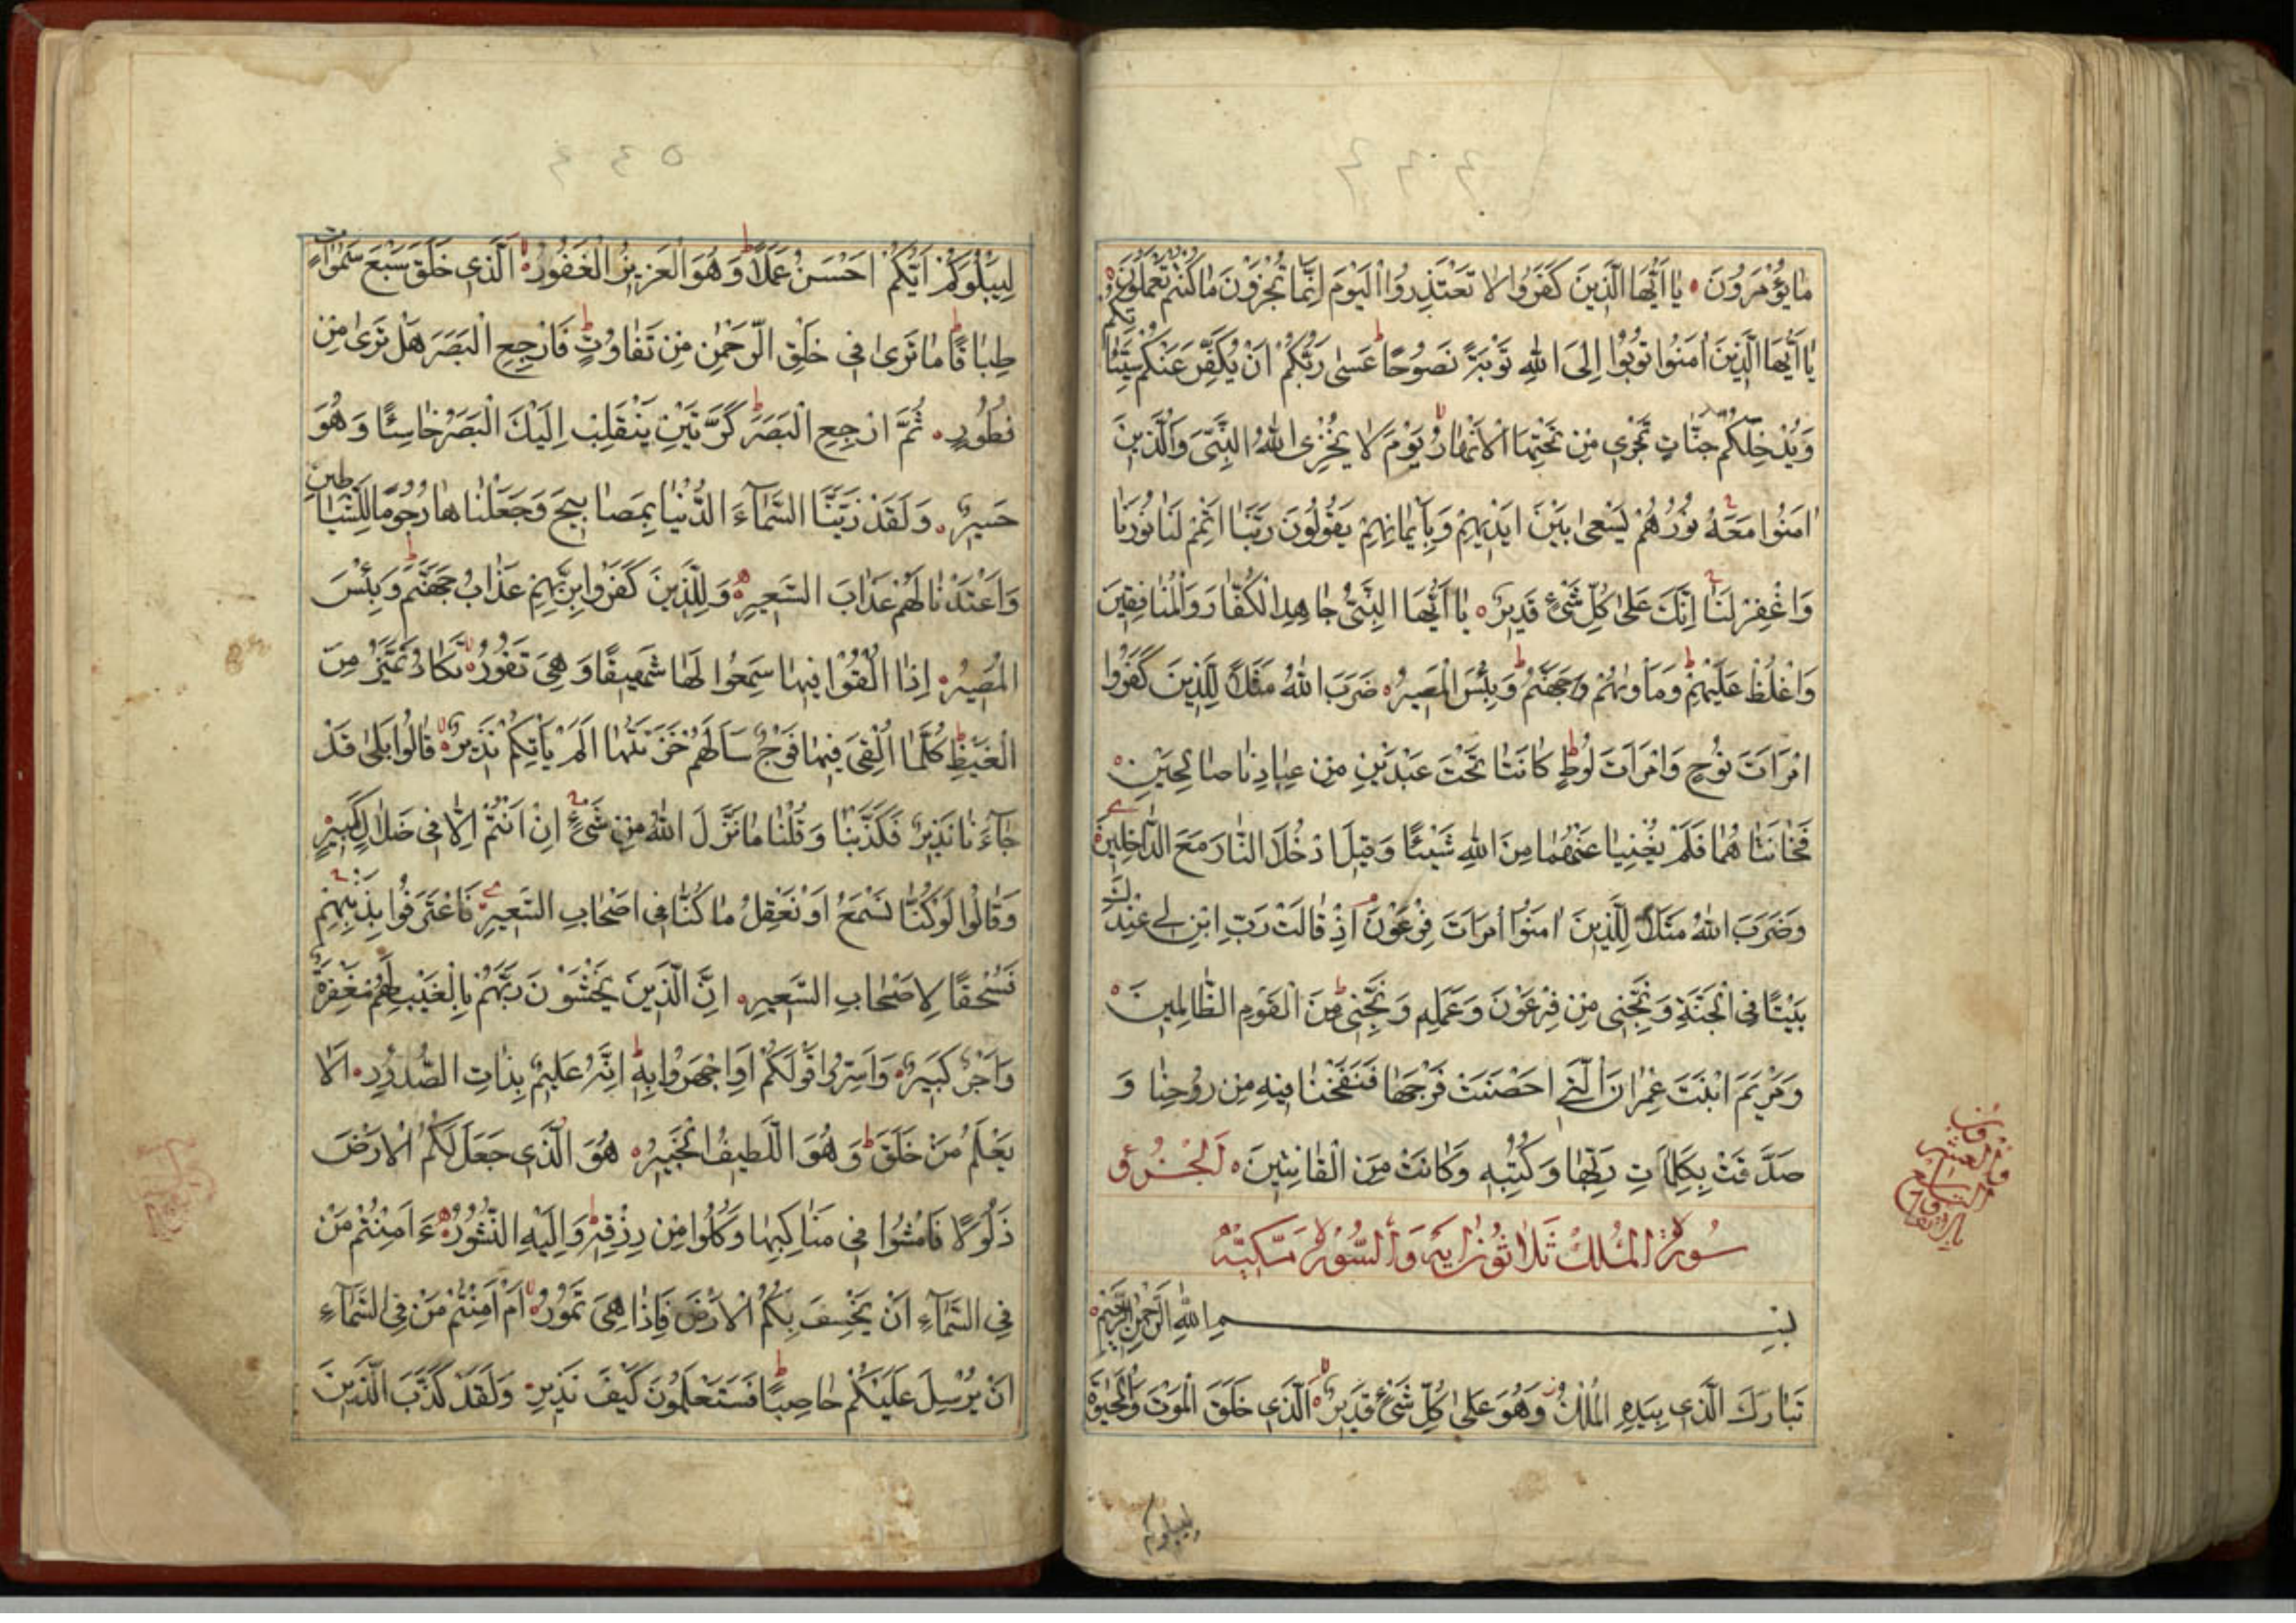 ٤٤٤
مٰا يُؤْمَرُونَ يٰا اَيُّهَا الَّذِينَ كَفَرُوا لَا تَعْتَذِرُوا الْيَوْمَ اِنَّمٰا تُجْزَوْنَ مٰا كُنْتُمْ تَعْمَلُونَ
يٰا اَيُّهَا الَّذِينَ اٰمَنُوا تُوبُوا اِلَى اللّٰهِ تَوْبَةً نَصُوحًا ط عَسٰى رَبُّكُمْ اَنْ يُكَفِّرَ عَنْكُمْ سَيِّئٰاتِكُمْ
وَيُدْخِلَكُمْ جَنّٰاتٍ تَجْرِي مِنْ تَحْتِهَا الْاَنْهٰارُ لا يَوْمَ لَا يُخْزِى اللّٰهُ النَّبِيَّ وَالَّذِينَ
اٰمَنُوا مَعَهُ نُورُهُمْ يَسْعٰى بَيْنَ اَيْدِيهِمْ وَبِاَيْمٰانِهِمْ يَقُولُونَ رَبَّنٰا اَتْمِمْ لَنٰا نُورَنٰا
وَاغْفِرْ لَنٰا اِنَّكَ عَلٰى كُلِّ شَيْءٍ قَدِيرٌ يٰا اَيُّهَا النَّبِيُّ جٰاهِدِ الْكُفّٰارَ وَالْمُنٰافِقِينَ
وَاغْلُظْ عَلَيْهِمْ ط وَمَأْوٰيهُمْ جَهَنَّمُ ط وَبِئْسَ الْمَصِيرُ ضَرَبَ اللّٰهُ مَثَلًا لِلَّذِينَ كَفَرُوا
امْرَاَتَ نُوحٍ وَامْرَاَتَ لُوطٍ ط كٰانَتٰا تَحْتَ عَبْدَيْنِ مِنْ عِبٰادِنٰا صٰالِحَيْنِ
فَخٰانَتٰاهُمٰا فَلَمْ يُغْنِيٰا عَنْهُمٰا مِنَ اللّٰهِ شَيْئًا وَقِيلَ ادْخُلَا النّٰارَ مَعَ الدّٰاخِلِينَ
وَضَرَبَ اللّٰهُ مَثَلًا لِلَّذِينَ اٰمَنُوا امْرَاَتَ فِرْعَوْنَ اِذْ قٰالَتْ رَبِّ ابْنِ لِي عِنْدَكَ
بَيْتًا فِي الْجَنَّةِ وَنَجِّنِي مِنْ فِرْعَوْنَ وَعَمَلِهِ وَنَجِّنِي مِنَ الْقَوْمِ الظّٰالِمِينَ
وَمَرْيَمَ ابْنَتَ عِمْرٰانَ الَّتِي اَحْصَنَتْ فَرْجَهٰا فَنَفَخْنٰا فِيهِ مِنْ رُوحِنٰا وَ
صَدَّقَتْ بِكَلِمٰاتِ رَبِّهٰا وَكُتُبِهِ وَكٰانَتْ مِنَ الْقٰانِتِينَ اَلْجُزْءُ
سُورَةُ الْمُلْكِ ثَلَاثُونَ اٰيَة وَالسُّورَة مَكِّيَّة
بِسْمِ اللّٰهِ الرَّحْمٰنِ الرَّحِيمِ
تَبٰارَكَ الَّذِي بِيَدِهِ الْمُلْكُ وَهُوَ عَلٰى كُلِّ شَيْءٍ قَدِيرٌ لا اَلَّذِي خَلَقَ الْمَوْتَ وَالْحَيٰوةَ
ليبلوكم
٤٤٥
لِيَبْلُوَكُمْ اَيُّكُمْ اَحْسَنُ عَمَلًا ط وَهُوَ الْعَزِيزُ الْغَفُورُ لا اَلَّذِي خَلَقَ سَبْعَ سَمٰوٰاتٍ
طِبٰاقًا ط مٰا تَرٰى فِي خَلْقِ الرَّحْمٰنِ مِنْ تَفٰاوُتٍ ط فَارْجِعِ الْبَصَرَ هَلْ تَرٰى مِنْ
فُطُورٍ ثُمَّ ارْجِعِ الْبَصَرَ كَرَّتَيْنِ يَنْقَلِبْ اِلَيْكَ الْبَصَرُ خٰاسِئًا وَهُوَ
حَسِيرٌ وَلَقَدْ زَيَّنَّا السَّمٰآءَ الدُّنْيٰا بِمَصٰابِيحَ وَجَعَلْنٰاهٰا رُجُومًا لِلشَّيٰاطِينِ
وَاَعْتَدْنٰا لَهُمْ عَذٰابَ السَّعِيرِ وَلِلَّذِينَ كَفَرُوا بِرَبِّهِمْ عَذٰابُ جَهَنَّمَ ط وَبِئْسَ
الْمَصِيرُ اِذٰا اُلْقُوا فِيهٰا سَمِعُوا لَهٰا شَهِيقًا وَهِيَ تَفُورُ لا تَكٰادُ تَمَيَّزُ مِنَ
الْغَيْظِ ط كُلَّمٰا اُلْقِيَ فِيهٰا فَوْجٌ سَاَلَهُمْ خَزَنَتُهٰا اَلَمْ يَأْتِكُمْ نَذِيرٌ لا قٰالُوا بَلٰى قَدْ
جٰآءَنٰا نَذِيرٌ فَكَذَّبْنٰا وَقُلْنٰا مٰا نَزَّلَ اللّٰهُ مِنْ شَيْءٍ اِنْ اَنْتُمْ اِلّٰا فِي ضَلٰالٍ كَبِيرٍ
وَقٰالُوا لَوْ كُنّٰا نَسْمَعُ اَوْ نَعْقِلُ مٰا كُنّٰا فِي اَصْحٰابِ السَّعِيرِ فَاعْتَرَفُوا بِذَنْبِهِمْ
فَسُحْقًا لِاَصْحٰابِ السَّعِيرِ اِنَّ الَّذِينَ يَخْشَوْنَ رَبَّهُمْ بِالْغَيْبِ لَهُمْ مَغْفِرَةٌ
وَاَجْرٌ كَبِيرٌ وَاَسِرُّوا قَوْلَكُمْ اَوِ اجْهَرُوا بِهِ ط اِنَّهُ عَلِيمٌ بِذٰاتِ الصُّدُورِ اَلَا
يَعْلَمُ مَنْ خَلَقَ ط وَهُوَ اللَّطِيفُ الْخَبِيرُ هُوَ الَّذِي جَعَلَ لَكُمُ الْاَرْضَ
ذَلُولًا فَامْشُوا فِي مَنٰاكِبِهٰا وَكُلُوا مِنْ رِزْقِهِ ط وَاِلَيْهِ النُّشُورُ ءَاَمِنْتُمْ مَنْ
فِي السَّمٰآءِ اَنْ يَخْسِفَ بِكُمُ الْاَرْضَ فَاِذٰا هِيَ تَمُورُ لا اَمْ اَمِنْتُمْ مَنْ فِي السَّمٰآءِ
اَنْ يُرْسِلَ عَلَيْكُمْ حٰاصِبًا ط فَسَتَعْلَمُونَ كَيْفَ نَذِيرِ وَلَقَدْ كَذَّبَ الَّذِينَ